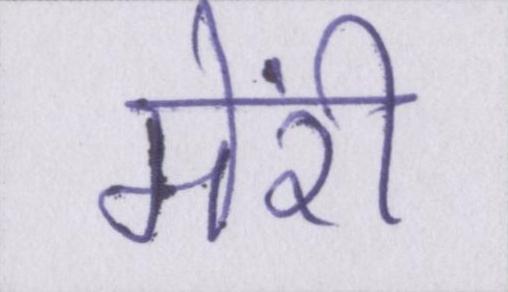 मेंरी